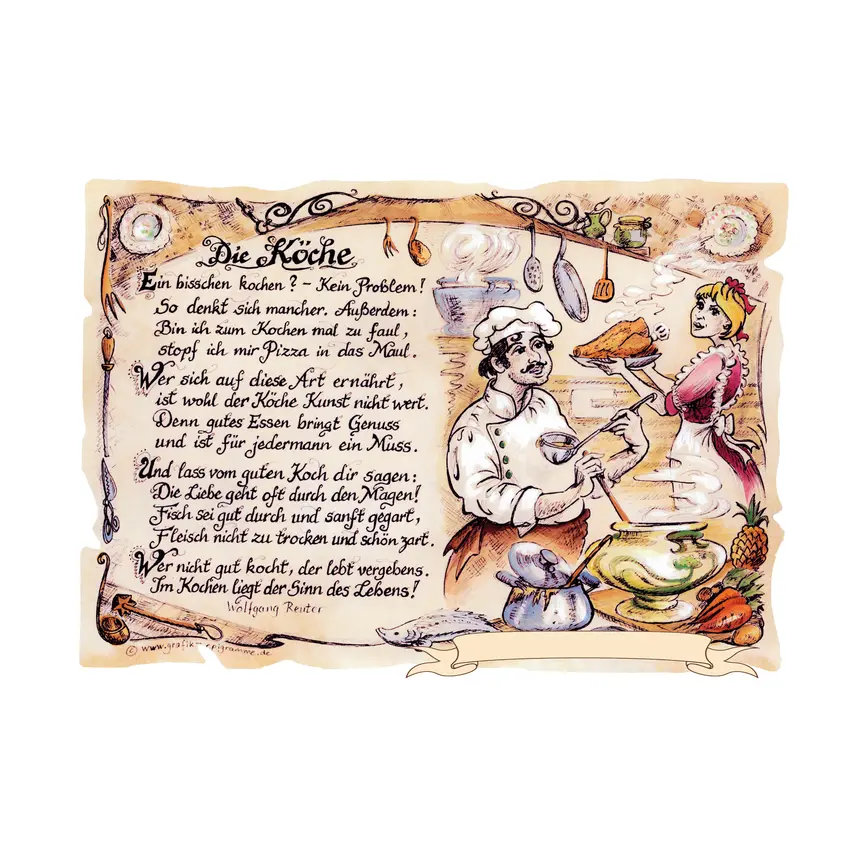 Die Köche
Ein bisschen kochen? - Kein Problem!
So denkt sich mancher. Außerdem:
Bin ich zum Kochen mal zu faul,
stopf ich mir Pizza in das Maul.
Wer sich auf diese Art ernährt,
ist wohl der Köche Kunst nicht wert.
Denn gutes Essen bringt Genuss
und ist für jedermann ein Muss.
Und lass vom guten Koch dir sagen:
Die Liebe geht oft durch den Magen!
Fisch sei gut durch und sanft gegart,
Fleisch nicht zu trocken und schön zart.
Wer nicht gut kocht, der lebt vergebens.
Im Kochen liegt der Sinn des Lebens!
Wolfgang Reuter